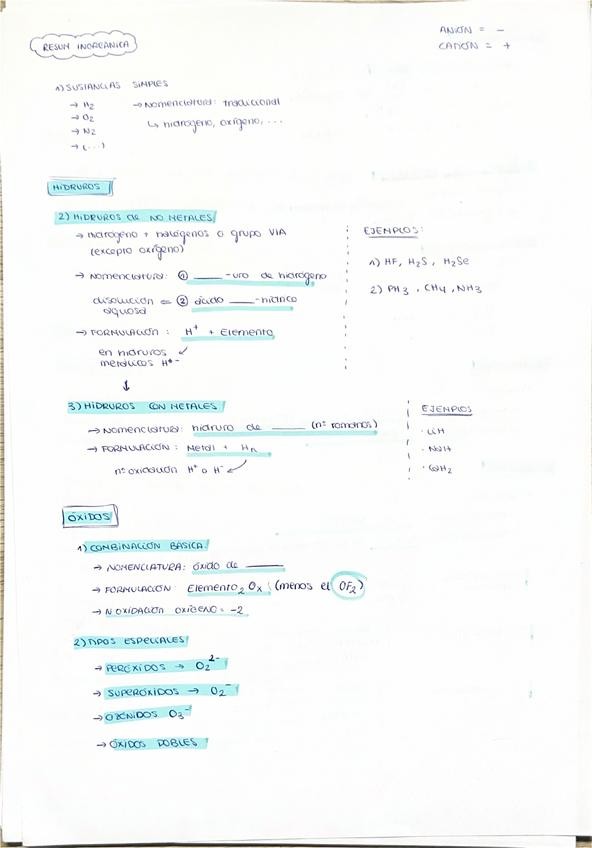 RESUM INORGÀNICA
ANIÓN = -
CATIÓN = +
1) SUSTANCIAS SIMPLES
→ H₂ → Nomenclatura: tradicional
→ O₂ ↳ hidrógeno, oxígeno, ...
→ N₂
→ (...)
HIDRUROS
2) HIDRUROS de NO METALES
→ hidrógeno + halógenos o grupo VIA
(excepto oxígeno)
→ Nomenclatura: ① ____-uro de hidrógeno
disolución = ② ácido ____-hídrico
aquosa
→ FORMULACIÓN: H⁺ + Elemento
en hidruros
metálicos H⁻
EJEMPLOS:
1) HF, H₂S, H₂Se
2) PH₃, CH₄, NH₃
↓
3) HIDRUROS CON METALES
→ Nomenclatura: hidruro de ____ (nº romanos)
→ FORMULACIÓN: Metal + Hₙ
nº oxidación H⁺ o H⁻
EJEMPLOS
· LiH
· NaH
· CaH₂
ÓXIDOS
1) COMBINACIÓN BÁSICA
→ NOMENCLATURA: óxido de ____
→ FORMULACIÓN: Elemento₂ Oₓ (menos el OF₂)
→ N OXIDACIÓN OXÍGENO = -2
2) TIPOS ESPECIALES
→ PERÓXIDOS → O₂²⁻
→ SUPERÓXIDOS → O₂⁻
→ OZÓNIDOS O₃⁻
→ ÓXIDOS DOBLES